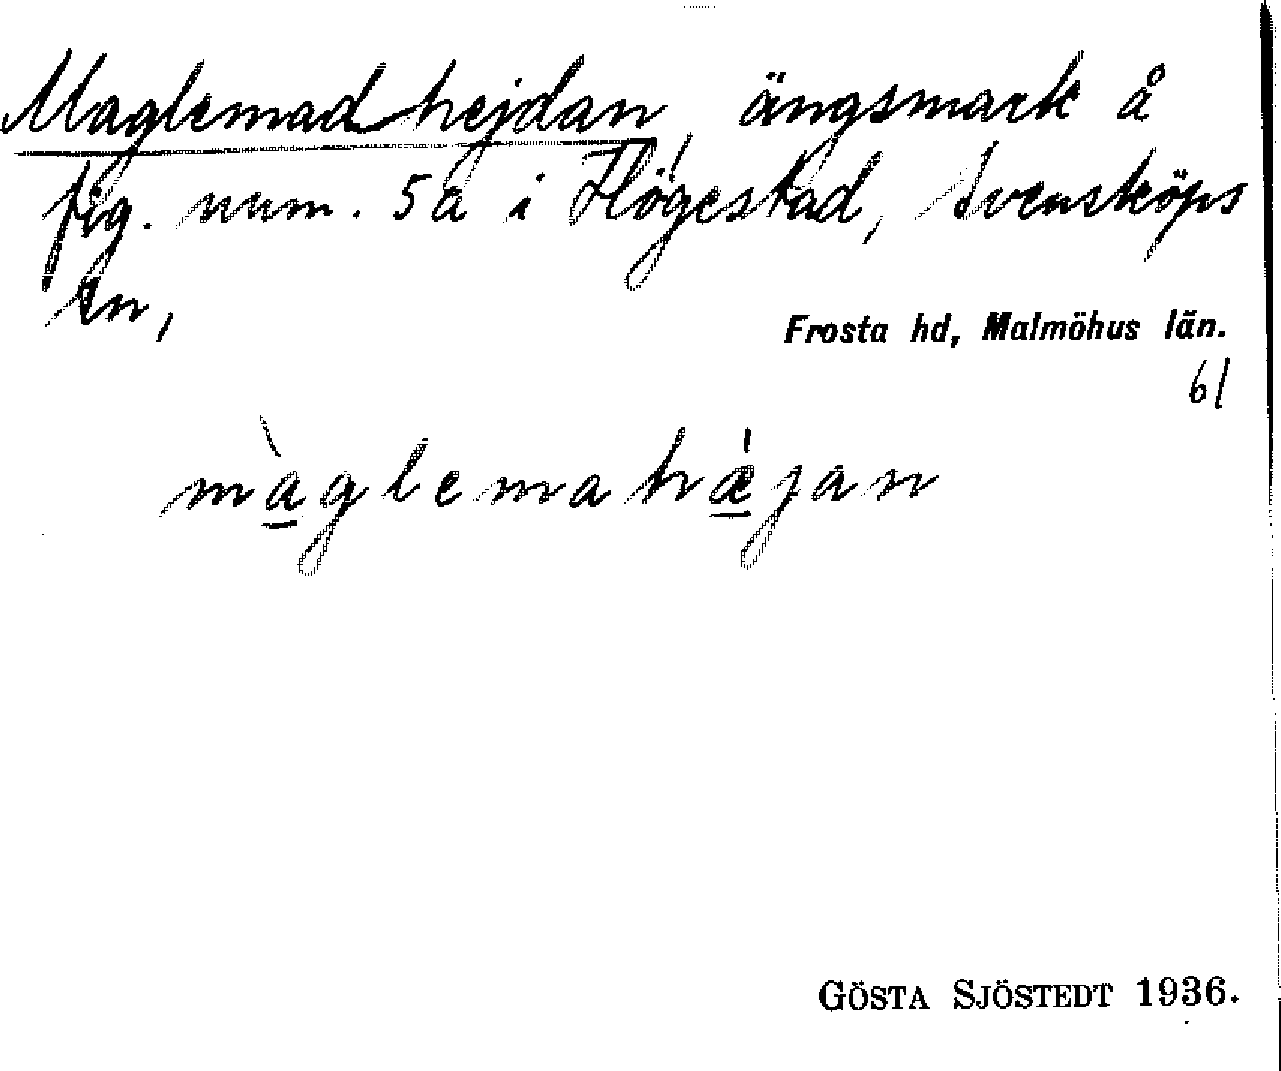 Maglemadhejdan, ängsmark å
fig. num. 5a i Högestad, Svensköps
sn,
Frosta hd, Malmöhus län.
61
màglemahæ̍jan
GÖSTA SJÖSTEDT 1936.